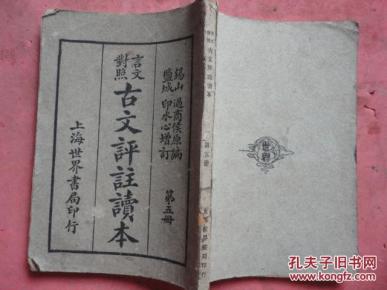 言文
對照
古文評註讀本
錫山 過商侯原編
鹽城 印水心增訂
第五册
上海世界書局印行
世界
孔夫子旧书网